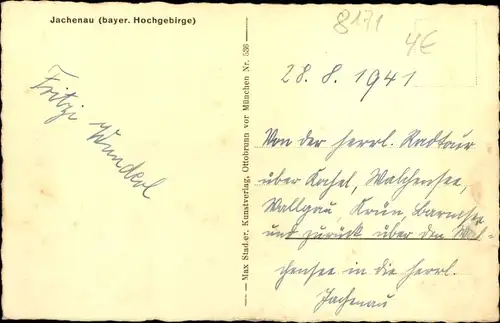 Jachenau (bayer. Hochgebirge)
8171
4€
28. 8. 1941
Fritzi Wunderl
Max Stadler, Kunstverlag, Ottobrunn vor München Nr. 536
Von der herrl. Radtour
über Kochel, Walchensee,
Wallgau, Krün, Barmsee
und zurück über den Wal-
chensee in die herrl.
Jachenau